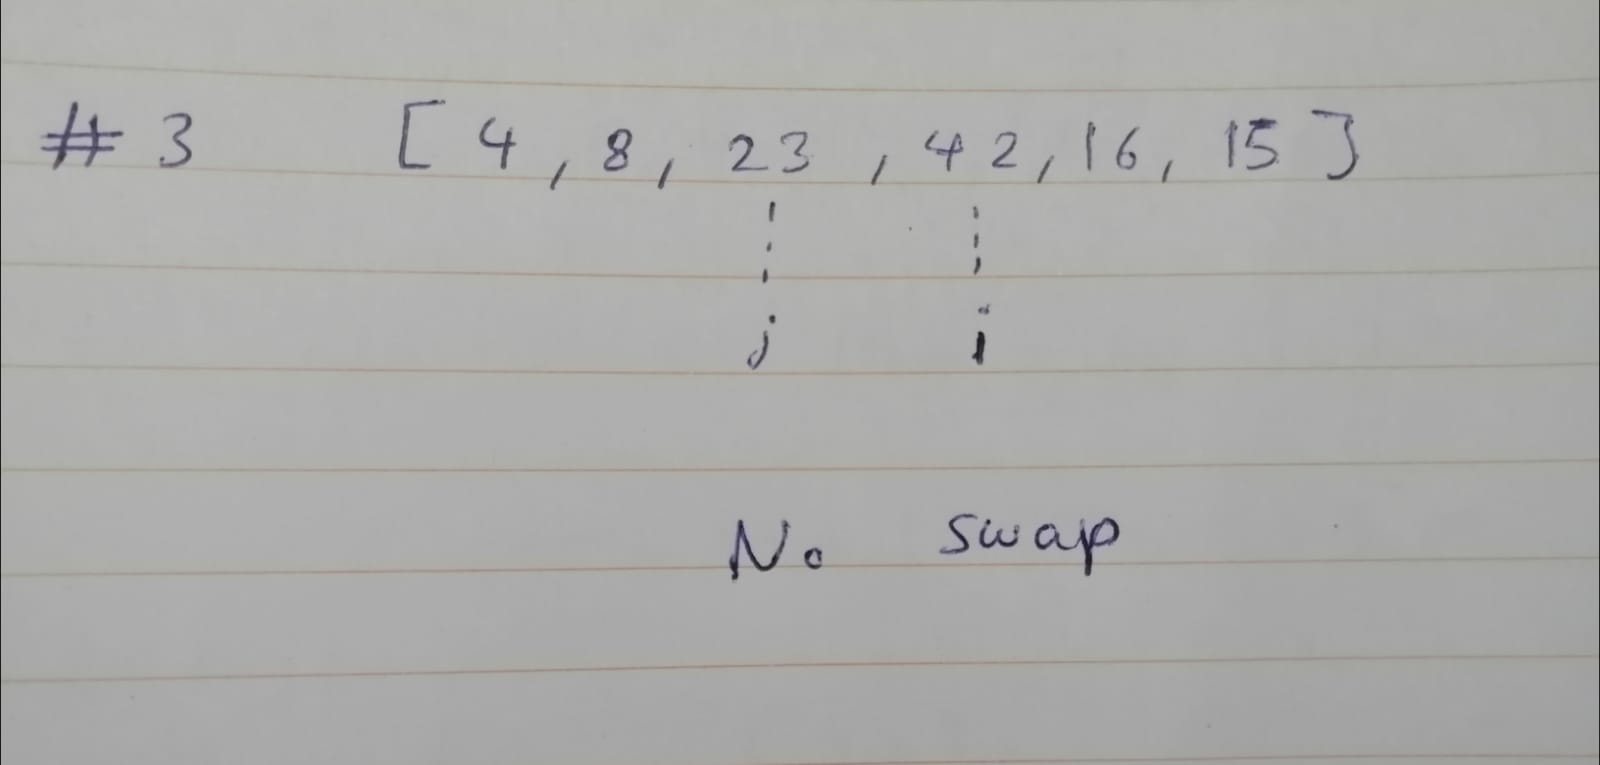 # 3 [ 4, 8, 23, 42, 16, 15 ]
j i
No swap